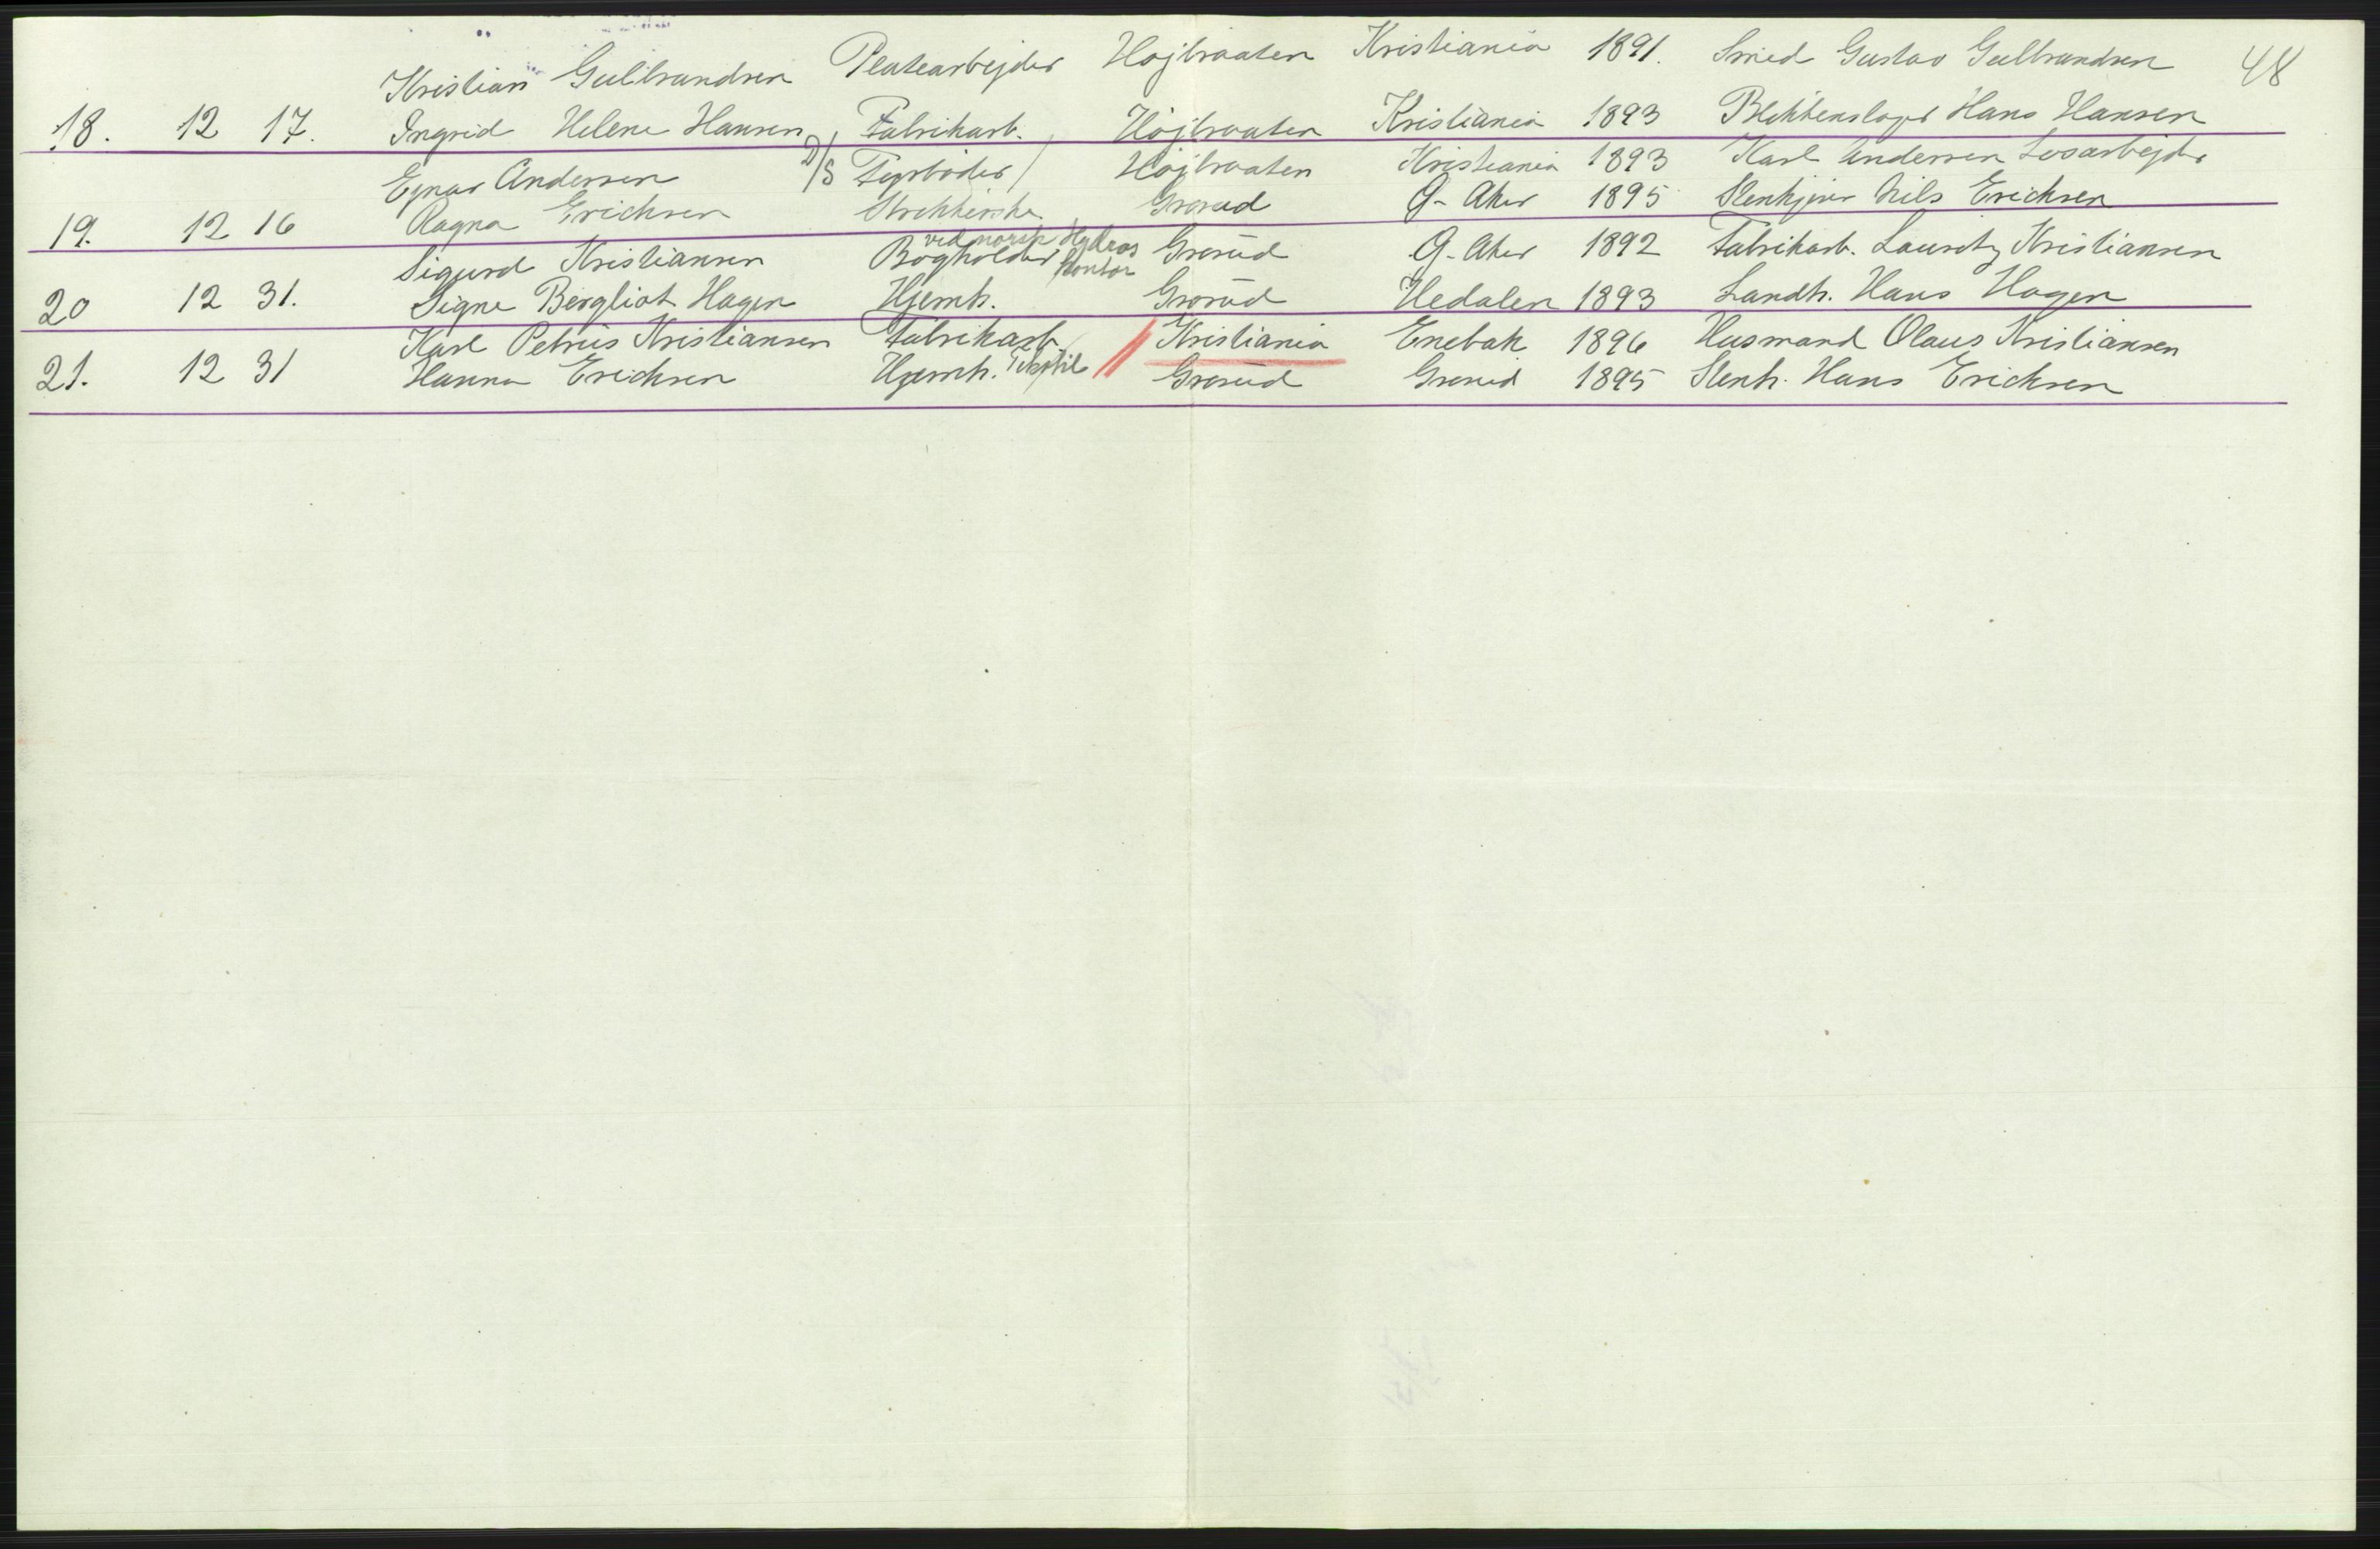 Kristian Gulbrandsen Platearbejder Højbraaten Kristiania 1891. Smed Gustav Gulbrandsen 48
18. 12 17. Ingrid Helene Hansen Fabrikarb. Højbraaten Kristiania 1893 Blikkenslager Hans Hansen
Ejnar Andersen D/S Fyrbøder Højbraaten Kristiania 1893 Karl Andersen Løsarbejder
19. 12 16 Ragna Erichsen Strekkerske Grorud Ø. Aker 1895 Stenkjører Nils Erichsen
Sigurd Kristiansen Bogholder ved norsk Hydros Kontor Grorud Ø. Aker 1892 Fabrikarb. Lauritz Kristiansen
20 12 31. Signe Bergliot Hagen Hjemh. Grorud Hedalen 1893 Landh. Hans Hagen
Karl Petrus Kristiansen Fabrikarb. Tekstil Kristiania Enebak 1896 Husmand Olaus Kristiansen
21. 12 31 Hanna Erichsen Hjemh. Grorud Grorud 1895 Stenh. Hans Erichsen